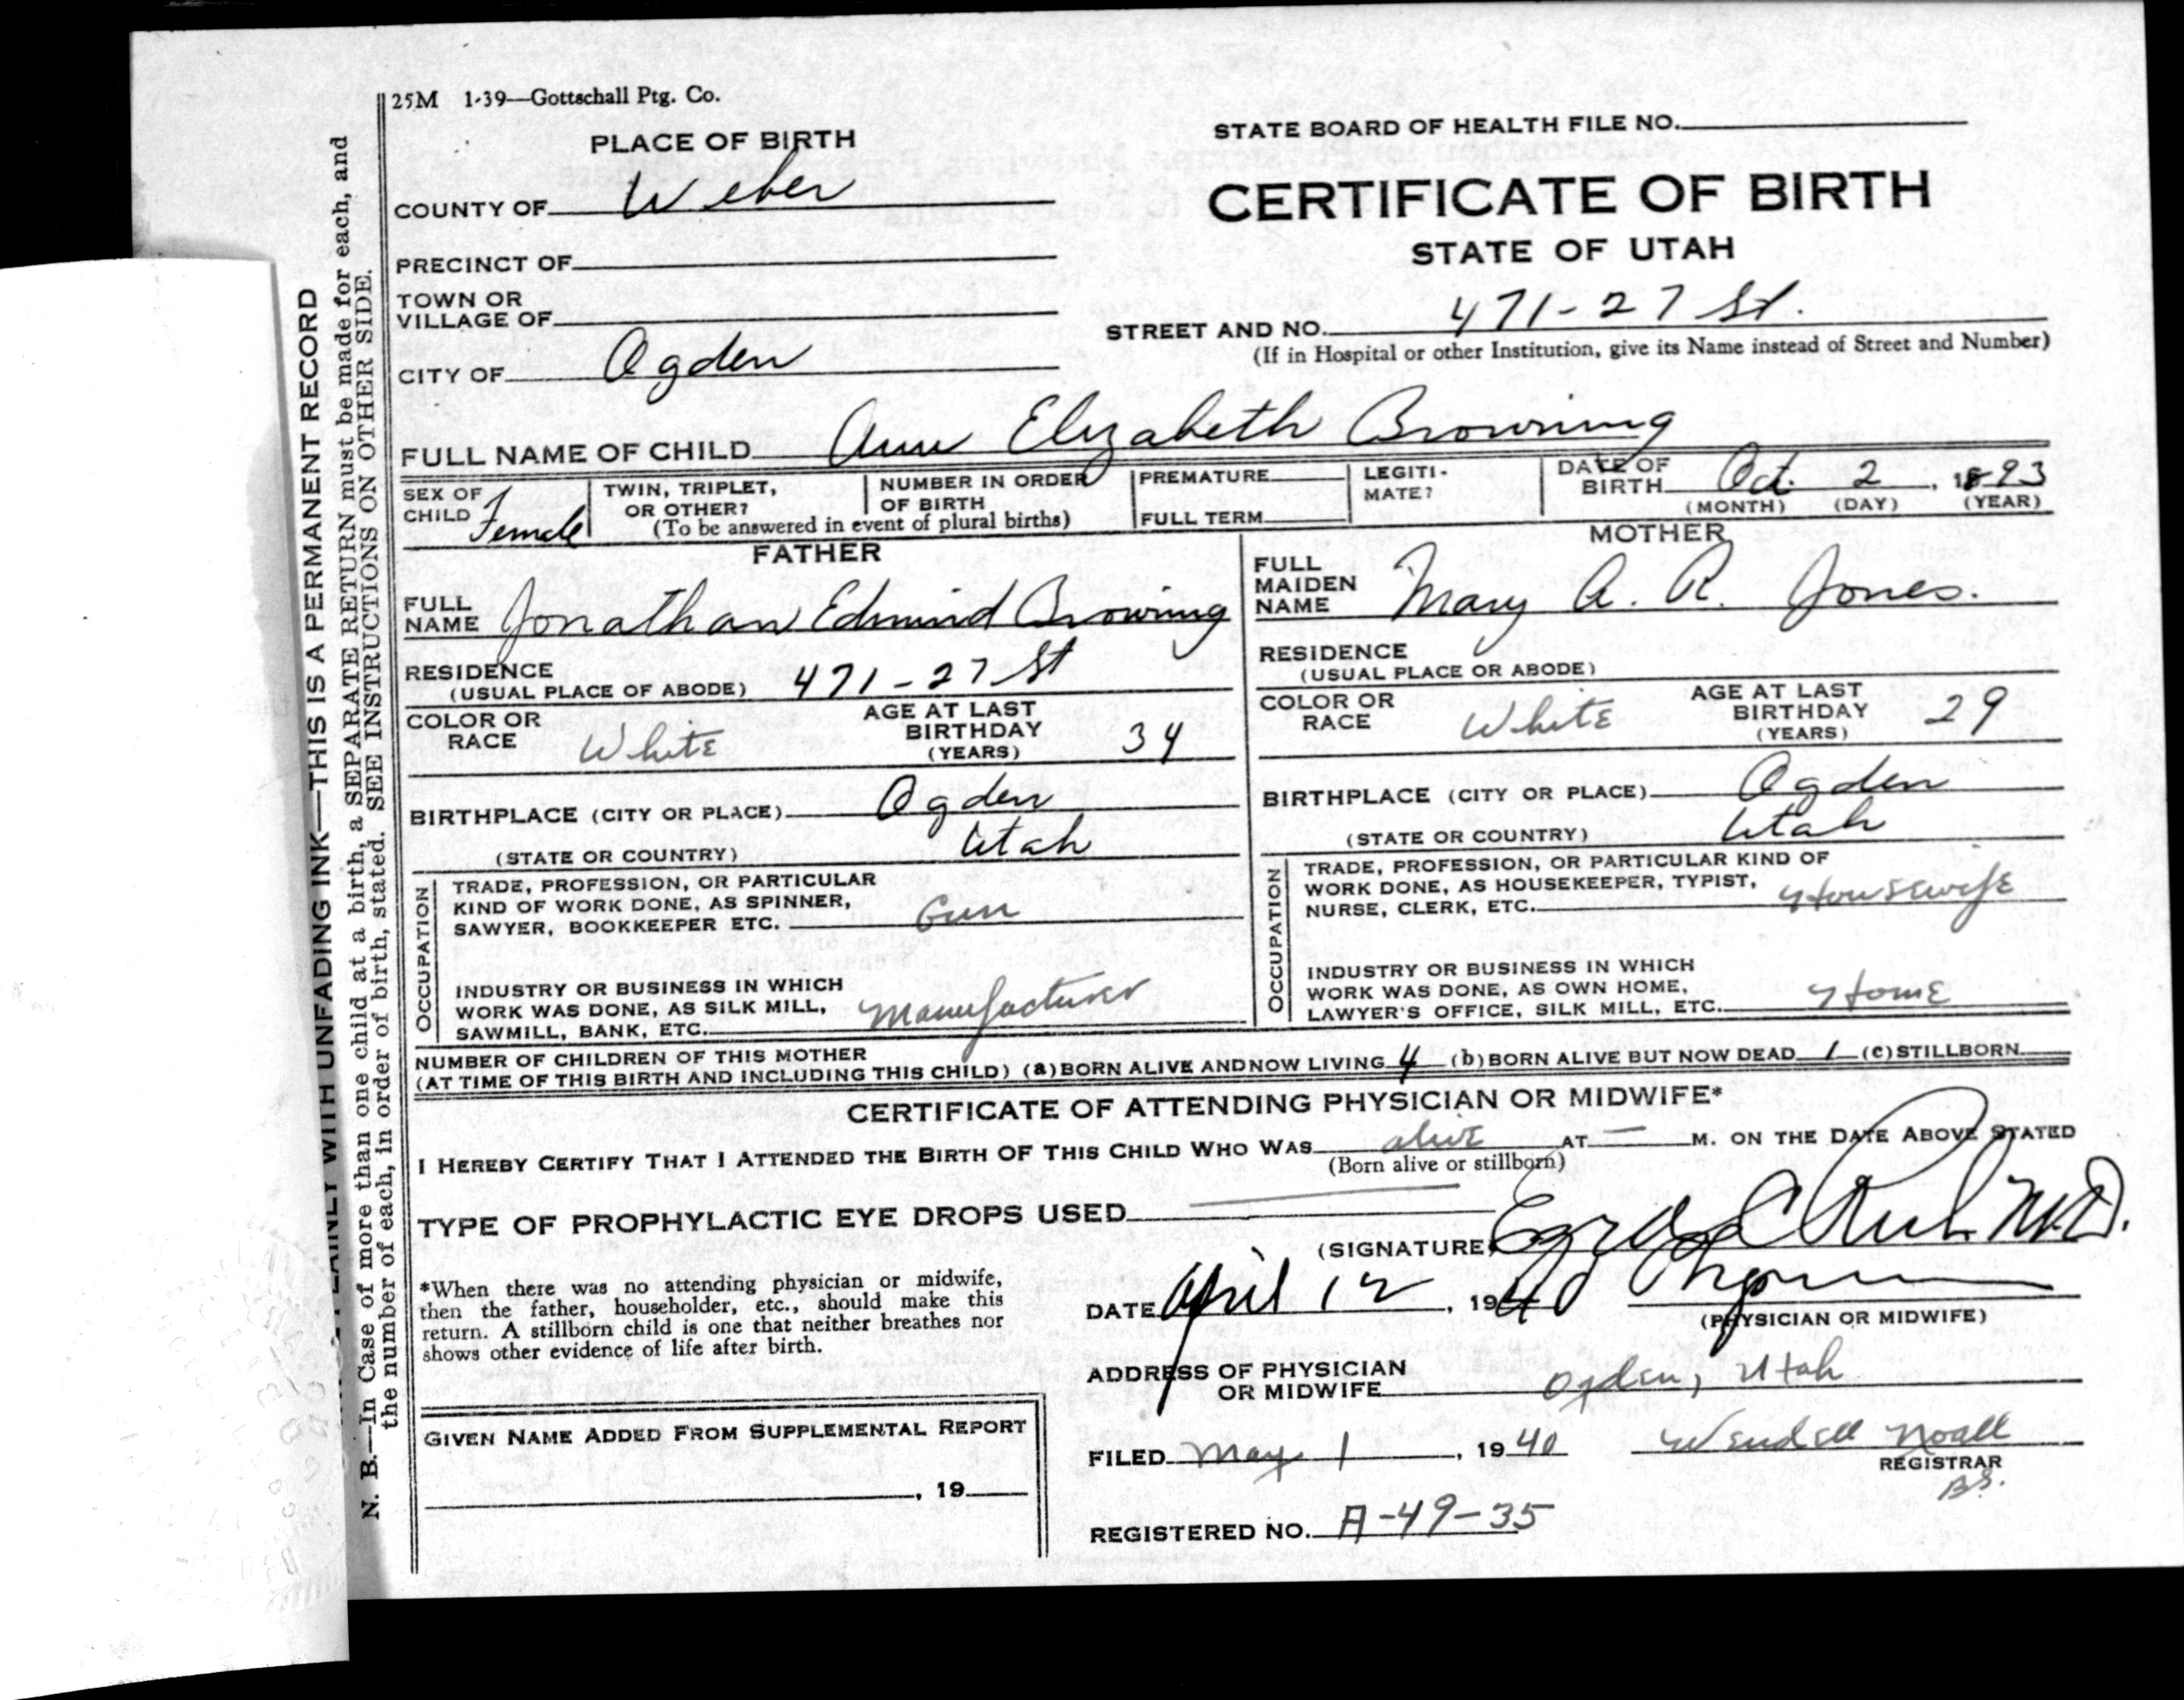 25M 1-39—Gottschall Ptg. Co.
PLACE OF BIRTH
COUNTY OF Weber
PRECINCT OF
TOWN OR
VILLAGE OF
CITY OF Ogden
STATE BOARD OF HEALTH FILE NO.
CERTIFICATE OF BIRTH
STATE OF UTAH
STREET AND NO. 471-27 St.
(If in Hospital or other Institution, give its Name instead of Street and Number)
FULL NAME OF CHILD Ann Elizabeth Browning
SEX OF
CHILD Female
TWIN, TRIPLET,
OR OTHER?
NUMBER IN ORDER
OF BIRTH
(To be answered in event of plural births)
PREMATURE
FULL TERM
LEGITI-
MATE?
DATE OF
BIRTH Oct. 2, 1893
(MONTH) (DAY) (YEAR)
FATHER
FULL
NAME Jonathan Edmund Browning
RESIDENCE
(USUAL PLACE OF ABODE) 471-27 St
COLOR OR
RACE White
AGE AT LAST
BIRTHDAY
(YEARS) 34
BIRTHPLACE (CITY OR PLACE) Ogden
(STATE OR COUNTRY) Utah
OCCUPATION
TRADE, PROFESSION, OR PARTICULAR
KIND OF WORK DONE, AS SPINNER,
SAWYER, BOOKKEEPER ETC. Gun
INDUSTRY OR BUSINESS IN WHICH
WORK WAS DONE, AS SILK MILL,
SAWMILL, BANK, ETC. Manufacturer
MOTHER
FULL
MAIDEN
NAME Mary A. R. Jones.
RESIDENCE
(USUAL PLACE OR ABODE)
COLOR OR
RACE White
AGE AT LAST
BIRTHDAY
(YEARS) 29
BIRTHPLACE (CITY OR PLACE) Ogden
(STATE OR COUNTRY) Utah
OCCUPATION
TRADE, PROFESSION, OR PARTICULAR KIND OF
WORK DONE, AS HOUSEKEEPER, TYPIST,
NURSE, CLERK, ETC. Housewife
INDUSTRY OR BUSINESS IN WHICH
WORK WAS DONE, AS OWN HOME,
LAWYER'S OFFICE, SILK MILL, ETC. Home
NUMBER OF CHILDREN OF THIS MOTHER
(AT TIME OF THIS BIRTH AND INCLUDING THIS CHILD) (a) BORN ALIVE AND NOW LIVING 4 (b) BORN ALIVE BUT NOW DEAD 1 (c) STILLBORN
CERTIFICATE OF ATTENDING PHYSICIAN OR MIDWIFE*
I HEREBY CERTIFY THAT I ATTENDED THE BIRTH OF THIS CHILD WHO WAS alive AT — M. ON THE DATE ABOVE STATED
(Born alive or stillborn)
TYPE OF PROPHYLACTIC EYE DROPS USED
(SIGNATURE) Ezra C Rich M.D.
*When there was no attending physician or midwife,
then the father, householder, etc., should make this
return. A stillborn child is one that neither breathes nor
shows other evidence of life after birth.
DATE April 12, 1940
(PHYSICIAN OR MIDWIFE)
ADDRESS OF PHYSICIAN
OR MIDWIFE Ogden, Utah
GIVEN NAME ADDED FROM SUPPLEMENTAL REPORT
, 19
FILED May 1, 1940 Wendell Noall
REGISTRAR
BS.
REGISTERED NO. A-49-35
PLAINLY WITH UNFADING INK—THIS IS A PERMANENT RECORD
N. B.—In Case of more than one child at a birth, a SEPARATE RETURN must be made for each, and
the number of each, in order of birth, stated. SEE INSTRUCTIONS ON OTHER SIDE.